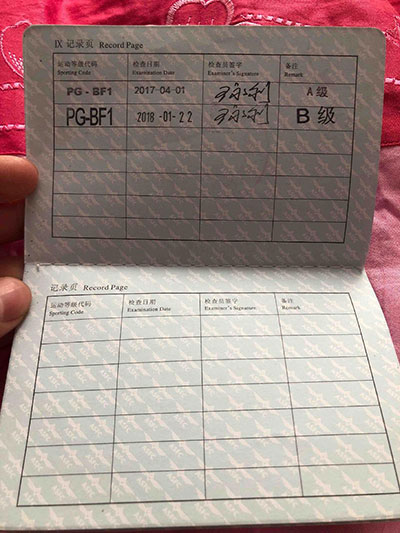 IX 记录页 Record Page
运动等级代码 检查日期 检查员签字 备注
Sporting Code Examination Date Examiner's Signature Remark
PG - BF1 2017-04-01 A 级
PG-BF1 2018 -01- 2 2 B 级
记录页 Record Page
运动等级代码 检查日期 检查员签字 备注
Sporting Code Examination Date Examiner's Signature Remark